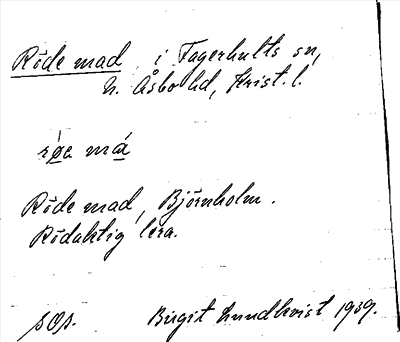 Röde mad i Fagerhults sn,
N. Åsbo hd, Krist. l.
røe má
Röde mad, Björnholm.
Rödaktig lera.
sop. Birgit Lundkvist 1939.